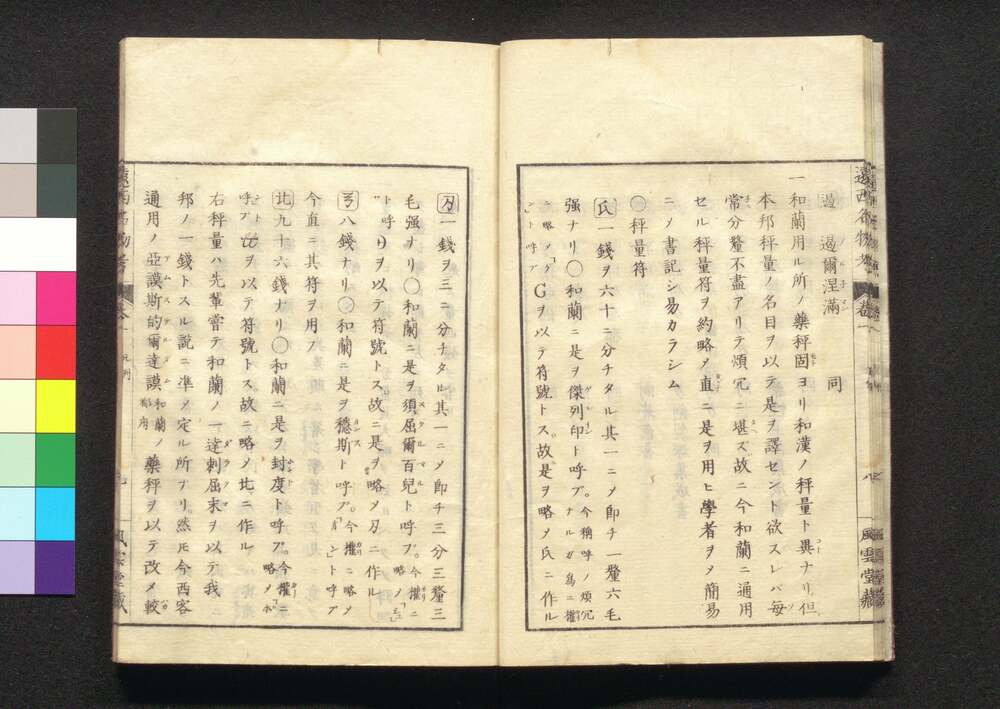 過 遏爾涅滿 同
一 和蘭用ル所ノ藥秤固ヨリ和漢ノ秤量ト異ナリ但
本邦秤量ノ名目ヲ以テ是ヲ譯セント欲スレバ毎
常分釐不盡アリテ煩冗ニ堪ズ故ニ今和蘭ニ通用
セル秤量符ヲ約略メ直ニ是ヲ用ヒ學者ヲメ簡易
ニメ書記シ易カラシム
〇秤量符
氏 一錢ヲ六十ニ分チタル其一ニメ卽チ一釐六毛
强ナリ〇和蘭ニ是ヲ傑列印ト呼ブ。今稱呼ノ煩冗ナルガ爲ニ權
ニ略メト呼ブ G ヲ以テ符號トス故是ヲ略メ氏ニ作ル
刄 一錢ヲ三ニ分タル其一ニメ卽チ三分三釐三
毛强ナリ〇和蘭ニ是ヲ須屈爾百兒ト呼ブ。今權ニ略メ
ト呼 Ə ヲ以テ符號トス故ニ是ヲ略メ刄ニ作ル
八錢ナリ〇和蘭ニ是ヲ穩斯ト呼ブ。今權ニ略メ「ヲン」ト呼ブ
今直ニ其符ヲ用ス
北 九十六錢ナリ〇和蘭ニ是ヲ封度ト呼ブ。今權ニ略メ「ポ
ント」ト呼ブ ℔ ヲ以テ符號トス故ニ略メ北ニ作ル
右秤量ハ先輩嘗テ和蘭ノ一達刺屈末ヲ以テ我
邦ノ一錢トスル說ニ準メ定ル所ナリ然モ今西客
通用ノ亞謨斯的爾達謨 和蘭ノ都府 藥秤ヲ以テ改メ較
風雲堂藏